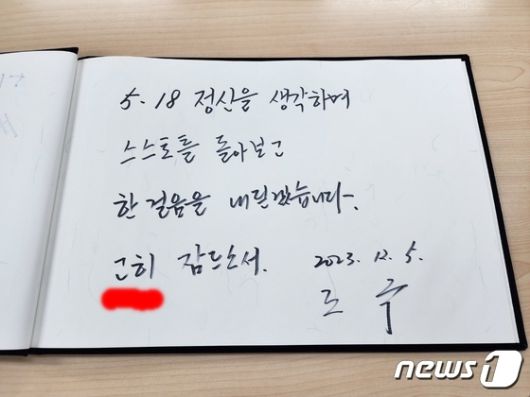 5. 18 정신을 생각하며
스스로를 돌아보고
한 걸음을 내딛겠습니다.
고히 잠드소서.
2023. 12. 5.
조 국
news1